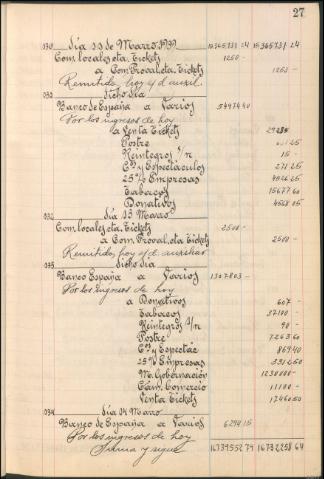 27
día 11 de Marzo 1939
Com. locales cta. Tickets 1250 -
a Com. Proval. cta. Tickets 1250 -
Remitido, hoy y d. auxil.
dicho día
Banco de España a Varios
Por los ingresos de hoy
a Venta Tickets
Postre
Reintegros s/n 15 -
Cos y Espectáculos
25% Empresas
Tabacos 15677 60
Donativos
932 día 13 Marzo
Com. locales cta. Tickets 2500 -
a Com. Proval. cta. Tickets 2500 -
Remitido, hoy y d. auxiliar
933 dicho día
Banco España a Varios 1307803 -
Por los ingresos de hoy
a Donativos 607 -
Tabacos 37100 -
Reintegros s/n 90 -
Postre 7263 60
Cos y Espectác 869 40
25% Empresas
M. Gobernación 1230000 -
Cám. Comercio 11100 -
Venta Tickets
934 día 14 Marzo
Banco de España a Varios 6294 15
Por los ingresos de hoy
Suma y sigue 16739552 79 16732258 64